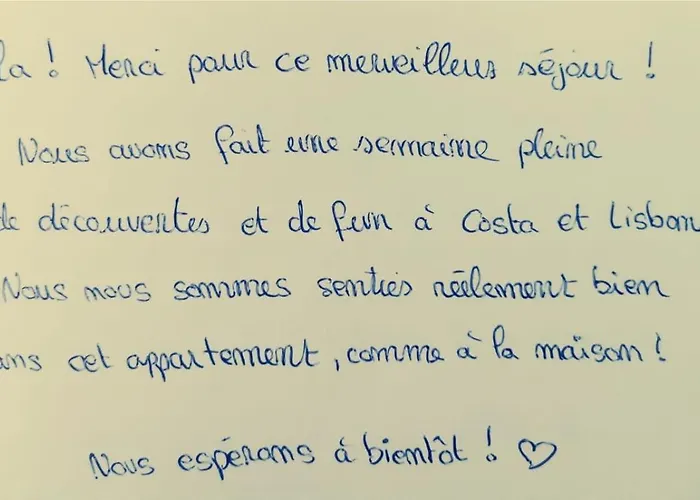 la ! Merci pour ce merveilleus séjour !
Nous avons fait une semaine pleine
de découvertes et de fun à Costa et Lisbon
Nous nous sommes senties réelement bien
ans cet appartement, comme à la maison !
Nous espérons à bientôt ! ♡